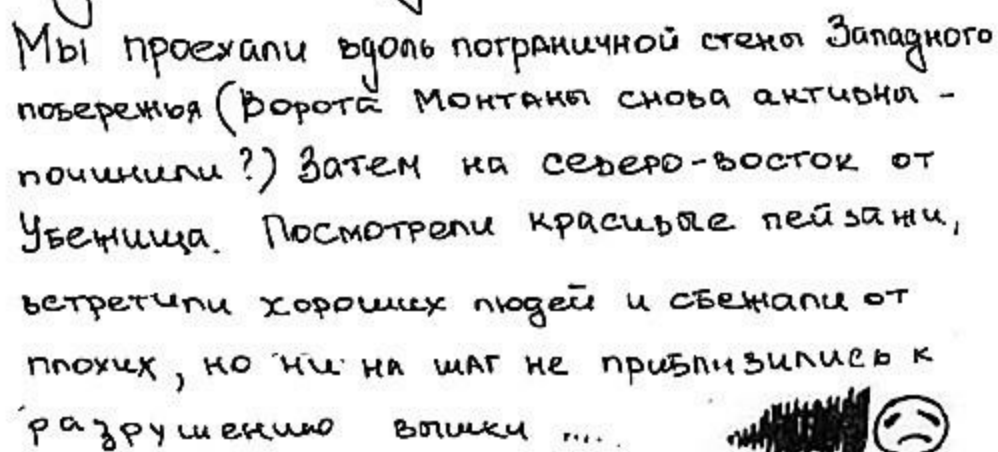 Мы проехали вдоль пограничной стены Западного
побережья (Ворота Монтаны снова активны -
починили?) Затем на северо-восток от
Убежища. Посмотрели красивые пейзажи,
встретили хороших людей и сбежали от
плохих, но ни на шаг не приблизились к
разрушению вышки ....